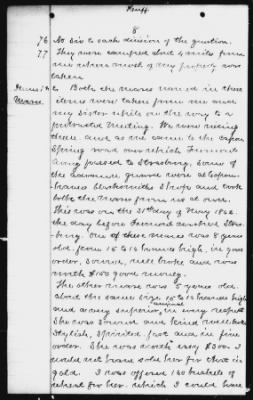 Neuff
8
76 No six to each division of the question.
77 They were camped about 4 miles from
me where most of my property was
taken
Items 1 & 2 Both the mares named in these
Mares items were taken from me and
my sister while on the way to a
protracted meeting. We were riding
them and as we came to the
Spring road over which Fremont's
Army passed to Strasburg, some of
the were at
blacksmith's shop and took
both the mares from us at once.
This was on the 31st day of May 1862.
the day before Fremont reached Stras-
burg. One of these mares was 8 years
old. from 15 to 16 hands high. in good
order, sound, well broke and was
worth $150 good money.
The other mare was 5 years old.
about the same size, 15 to 16 hands high
and a very superior animal in every respect
She was sound and kind
stylish, spirited, fast and in fine
order. She was worth say $300. I
would not have sold her for that in
gold. I was offered 150 bushels of
wheat for her. which I could have